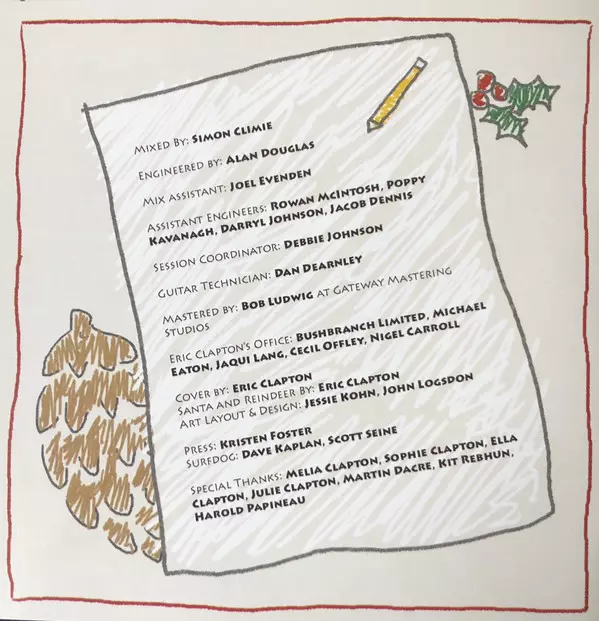 Mixed By: Simon Climie
Engineered by: Alan Douglas
Mix assistant: Joel Evenden
Assistant Engineers: Rowan McIntosh, Poppy
Kavanagh, Darryl Johnson, Jacob Dennis
Session Coordinator: Debbie Johnson
Guitar Technician: Dan Dearnley
Mastered by: Bob Ludwig at Gateway Mastering
Studios
Eric Clapton's Office: Bushbranch Limited, Michael
Eaton, Jaqui Lang, Cecil Offley, Nigel Carroll
Cover by: Eric Clapton
Santa and Reindeer by: Eric Clapton
Art Layout & Design: Jessie Kohn, John Logsdon
Press: Kristen Foster
Surfdog: Dave Kaplan, Scott Seine
Special Thanks: Melia Clapton, Sophie Clapton, Ella
Clapton, Julie Clapton, Martin Dacre, Kit Rebhun,
Harold Papineau